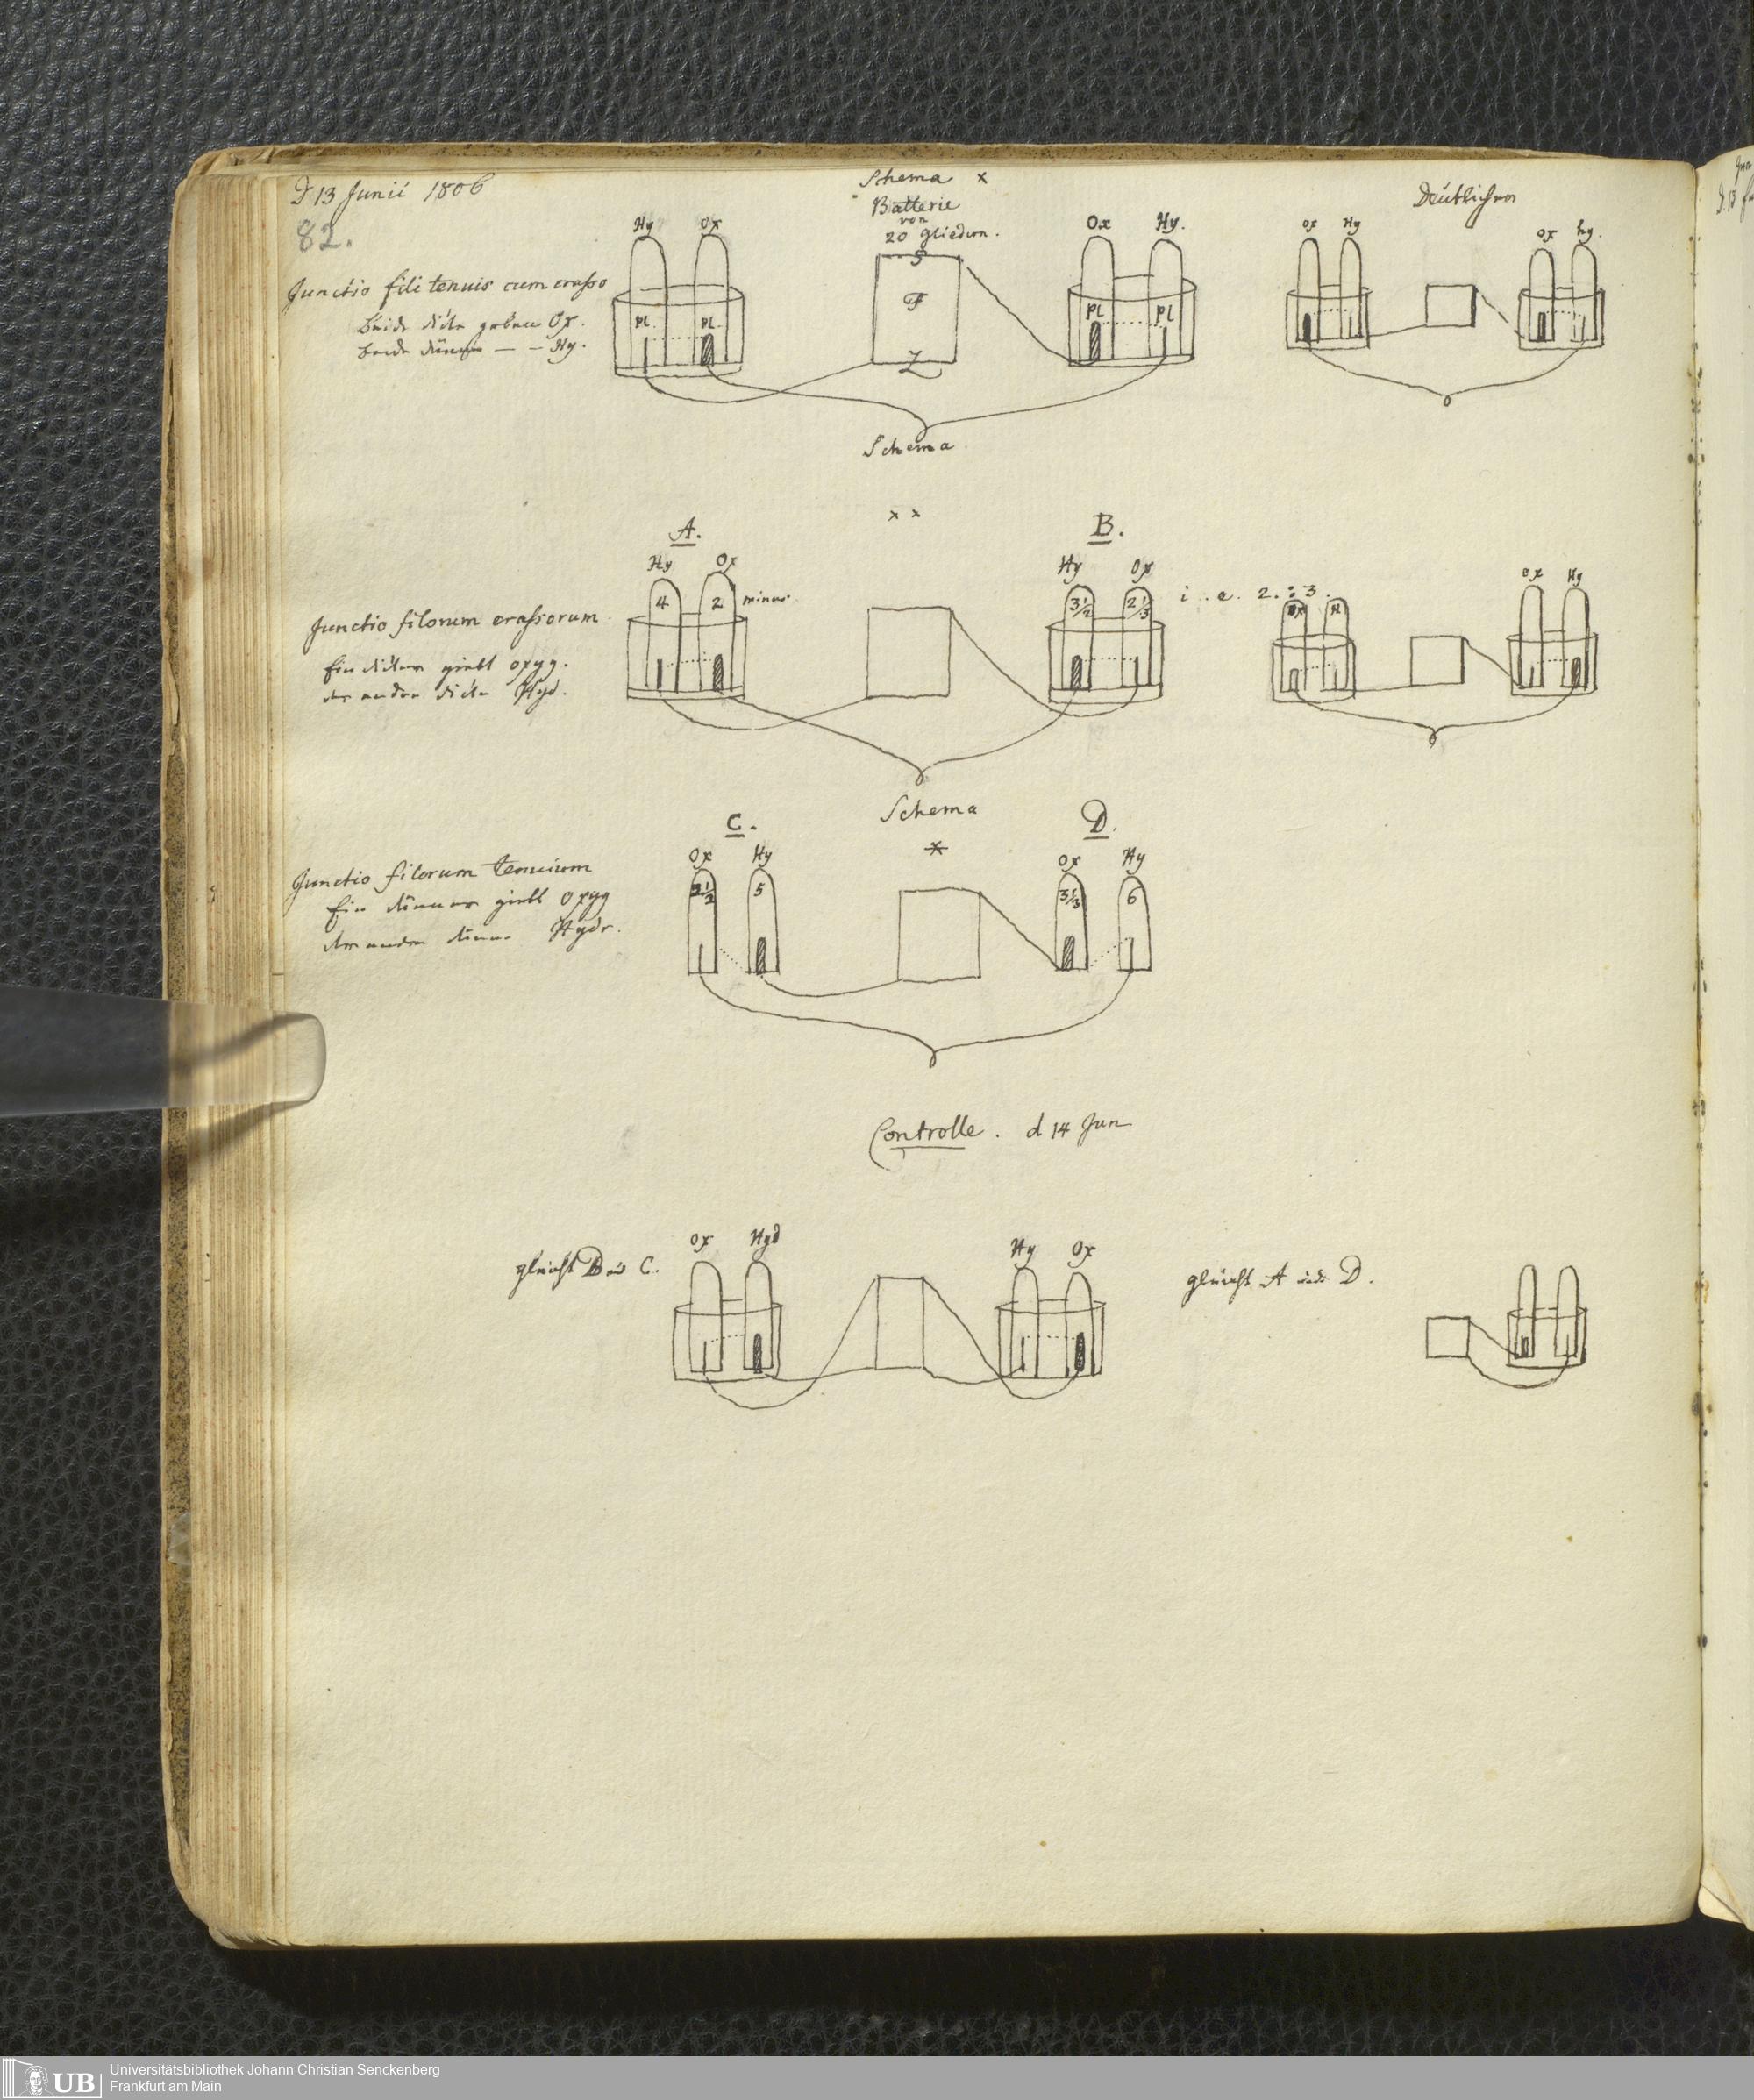 D 13 Junii 1806
82.
Schema ×
Batterie
von
20 Gliedern.
Deütlicher
Hy Ox
Ox Hy.
ox Hy
ox hy.
S
F
Z
Pl. Pl.
Pl Pl
Junctio fili tenuis cum crasso
Beide dicke geben Ox.
beide dünne — – Hy.
Schema
× ×
A.
B.
Hy Ox
Hy Ox
ox Hy
4 2 minus
3 1/2 2 1/3
i. e. 2 : 3.
ox H
Junctio filorum crassorum
Ein dicker giebt oxyg.
der andre dicke Hyd.
Schema
*
C.
D.
Ox Hy
Ox Hy
2 1/2 5
3 1/3 6
Junctio filorum tenuium
Ein dünner giebt Oxyg
der andre dünne Hydr.
Controlle. d 14 Jun
gleicht B und C.
Ox Hyd
Hy Ox
gleicht A und D.
UB
Universitätsbibliothek Johann Christian Senckenberg
Frankfurt am Main